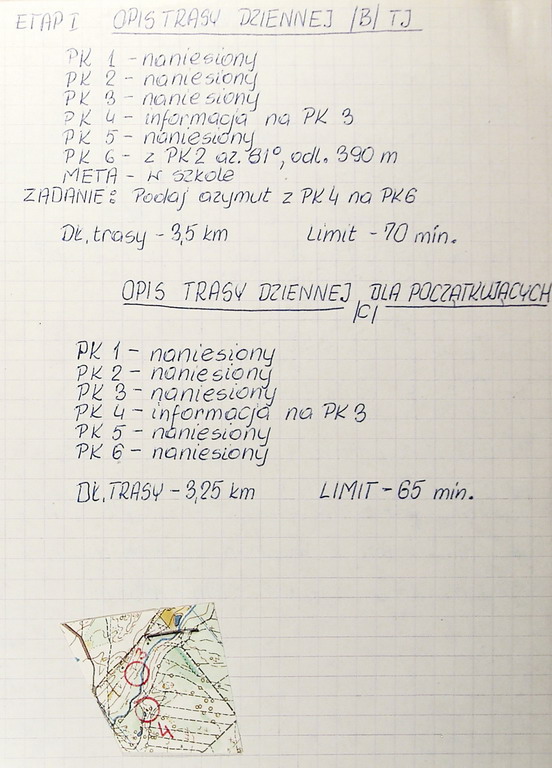 ETAP I OPIS TRASY DZIENNEJ /B/ TJ
PK 1 - naniesiony
PK 2 - naniesiony
PK 3 - naniesiony
PK 4 - informacja na PK 3
PK 5 - naniesiony
PK 6 - z PK2 az. 81°, odl. 390 m
META - w szkole
ZADANIE: Podaj azymut z PK4 na PK6
Dł. trasy - 3,5 km Limit - 70 min.
OPIS TRASY DZIENNEJ DLA POCZĄTKUJĄCYCH
/C/
PK 1 - naniesiony
PK 2 - naniesiony
PK 3 - naniesiony
PK 4 - informacja na PK3
PK 5 - naniesiony
PK 6 - naniesiony
DŁ. TRASY - 3,25 km LIMIT - 65 min.
3
4